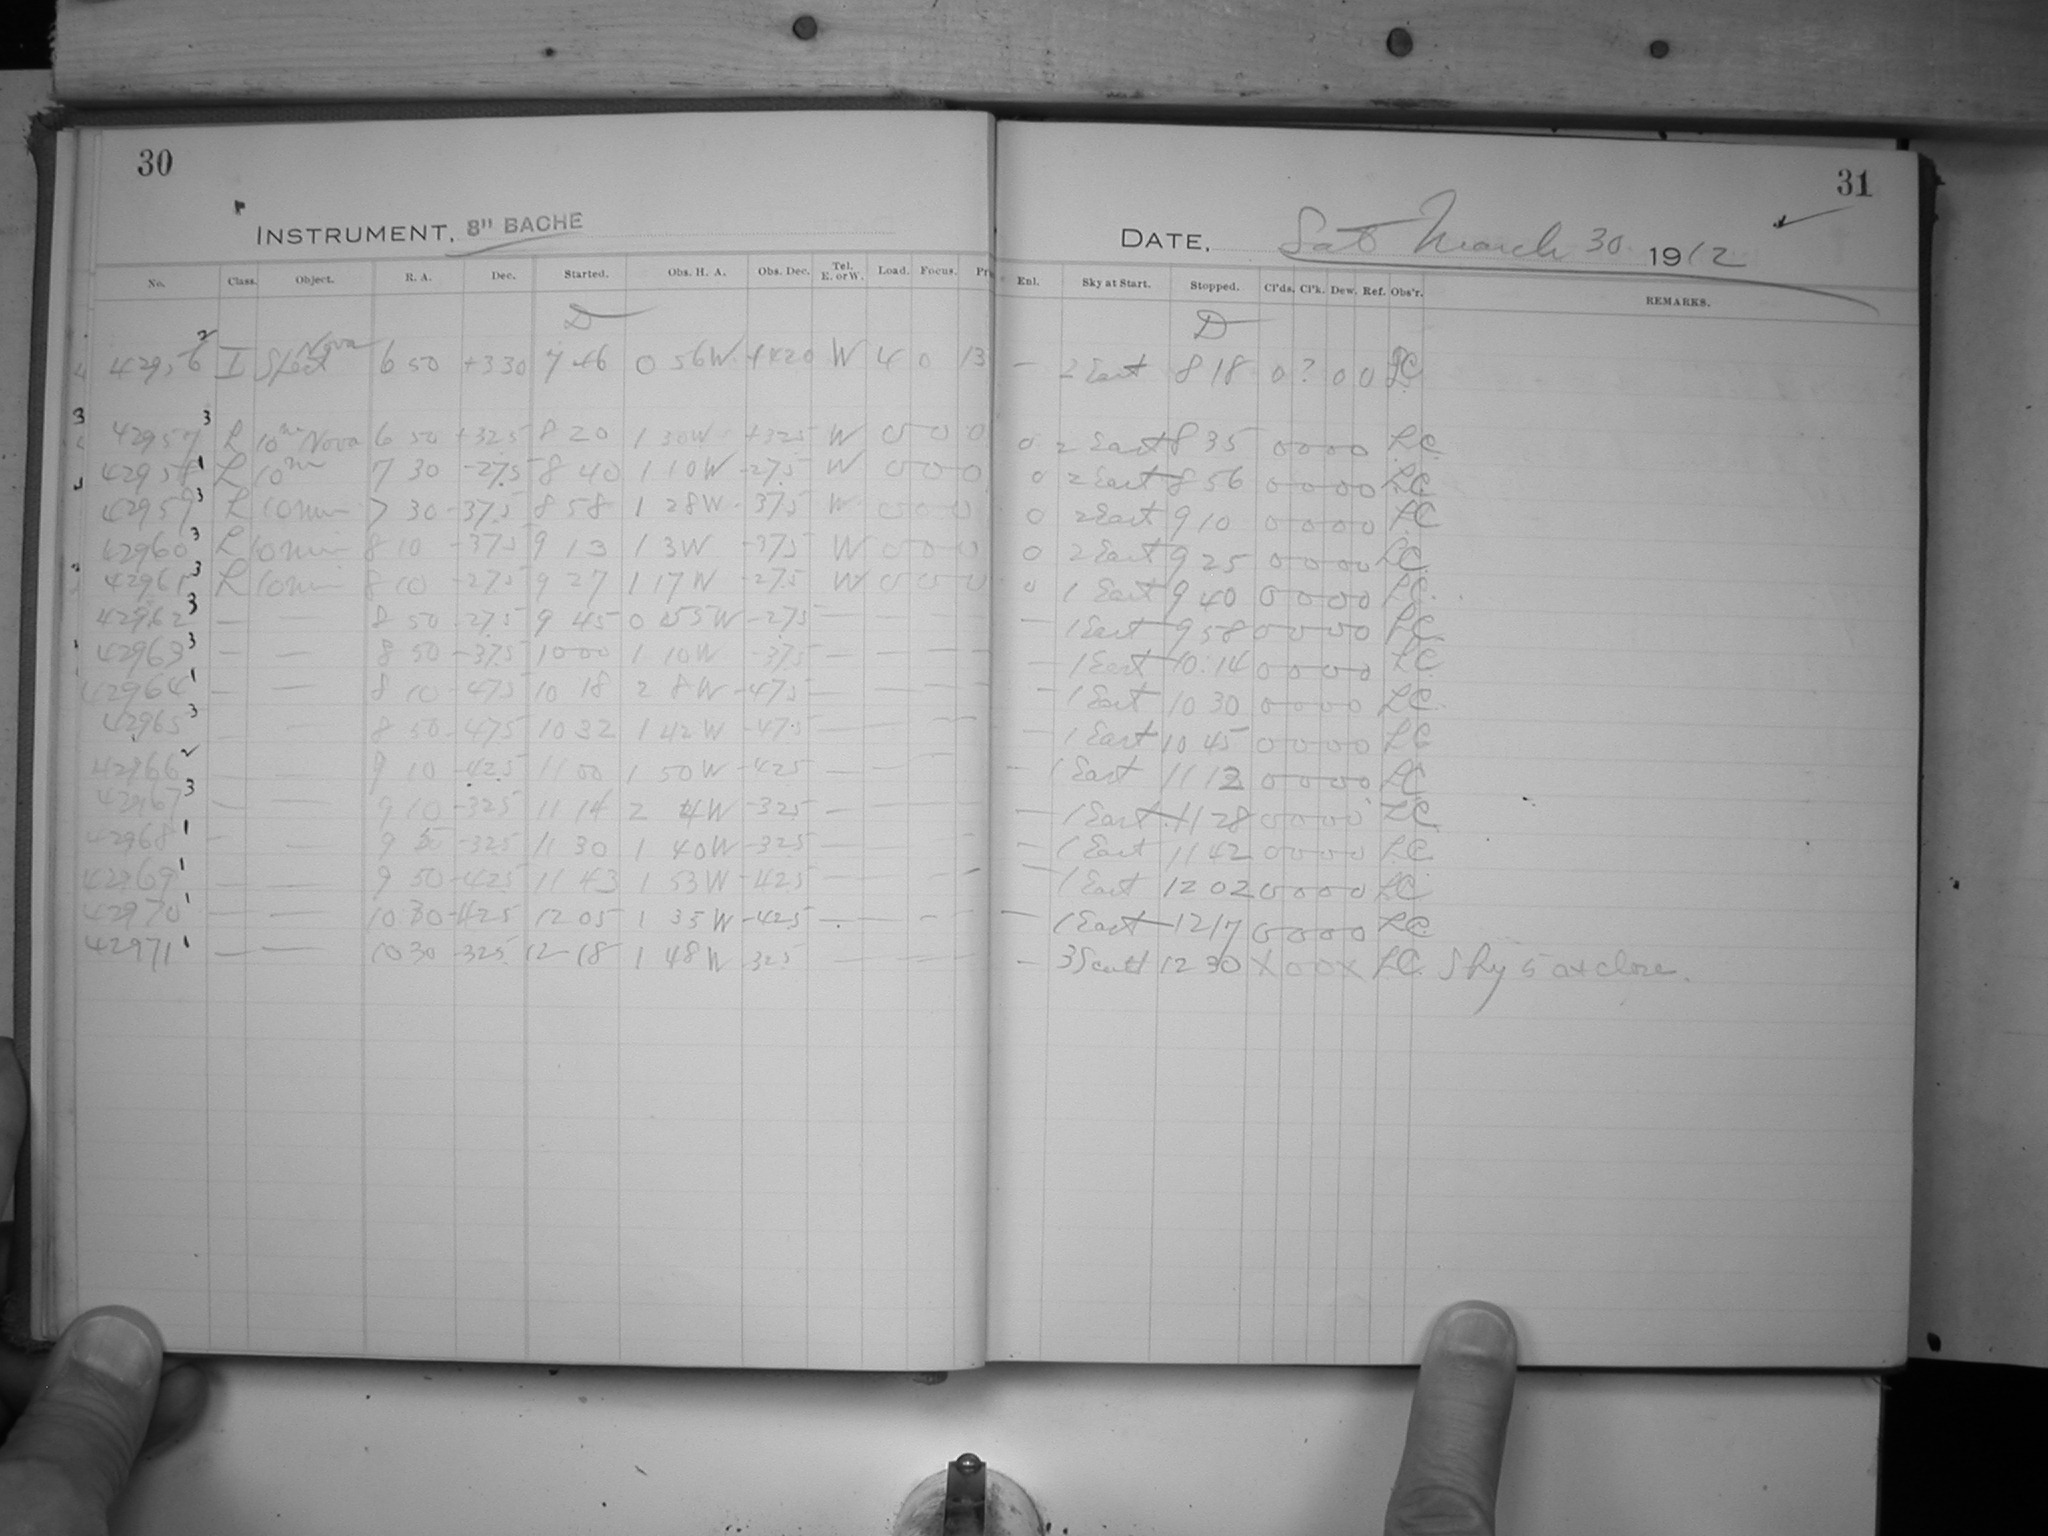 30
INSTRUMENT, 8" BACHE
No. Class. Object. R. A. Dec. Started. Obs. H. A. Obs. Dec. Tel. E. or W. Load. Focus. Pr
D
Nova
42956 2 I Spect 6 50 +330 7 46 0 56W W 4 0 13
42957 3 L 10m Nova 6 50 +325 8 20 1 30W +325 W 0 0 0
42958 1 L 10m 7 30 -275 8 40 1 10W -275 W 0 0 0
42959 3 L 10min 7 30 -375 8 58 1 28W -375 W 0 0 0
42960 3 L 10min 8 10 -375 9 13 1 3W -375 W 0 0 0
42961 3 L 10min 8 10 -275 9 27 1 17W -275 W 0 0 0
42962 3 — — 8 50 -275 9 45 0 55W -275 — — — —
42963 3 — — 8 50 -375 10 00 1 10W -375 — — — —
42964 1 — — 8 10 -475 10 18 2 8W -475 — — — —
42965 3 — — 8 50 -475 10 32 1 42W -475 — — — —
42966 2 — — 9 10 -425 11 00 1 50W -425 — — — —
42967 3 — — 9 10 -325 11 14 2 4W -325 — — — —
42968 1 — — 9 50 -325 11 30 1 40W -325 — — — —
42969 1 — — 9 50 -425 11 43 1 53W -425 — — — —
42970 1 — — 10 30 -425 12 05 1 35W -425 — — — —
42971 1 — — 10 30 -325 12 18 1 48W -325 — — — —
31
DATE, Sat March 30 1912
Enl. Sky at Start. Stopped. Cl'ds. Cl'k. Dew. Ref. Obs'r. REMARKS.
D
— 2 East 8 18 0 ? 0 0 LC.
0 2 East 8 35 0 0 0 0 L.C.
0 2 East 8 56 0 0 0 0 LC.
0 2 East 9 10 0 0 0 0 LC
0 2 East 9 25 0 0 0 0 LC.
0 1 East 9 40 0 0 0 0 LC.
— 1 East 9 58 0 0 0 0 LC.
— 1 East 10 14 0 0 0 0 LC
— 1 East 10 30 0 0 0 0 LC.
— 1 East 10 45 0 0 0 0 LC
— 1 East 11 12 0 0 0 0 LC
— 1 East 11 28 0 0 0 0 LC.
— 1 East 11 42 0 0 0 0 LC
— 1 East 12 02 0 0 0 0 LC
— 1 East 12 17 0 0 0 0 LC.
— 3 South 12 30 X 0 0 X LC. Sky 5 at close.